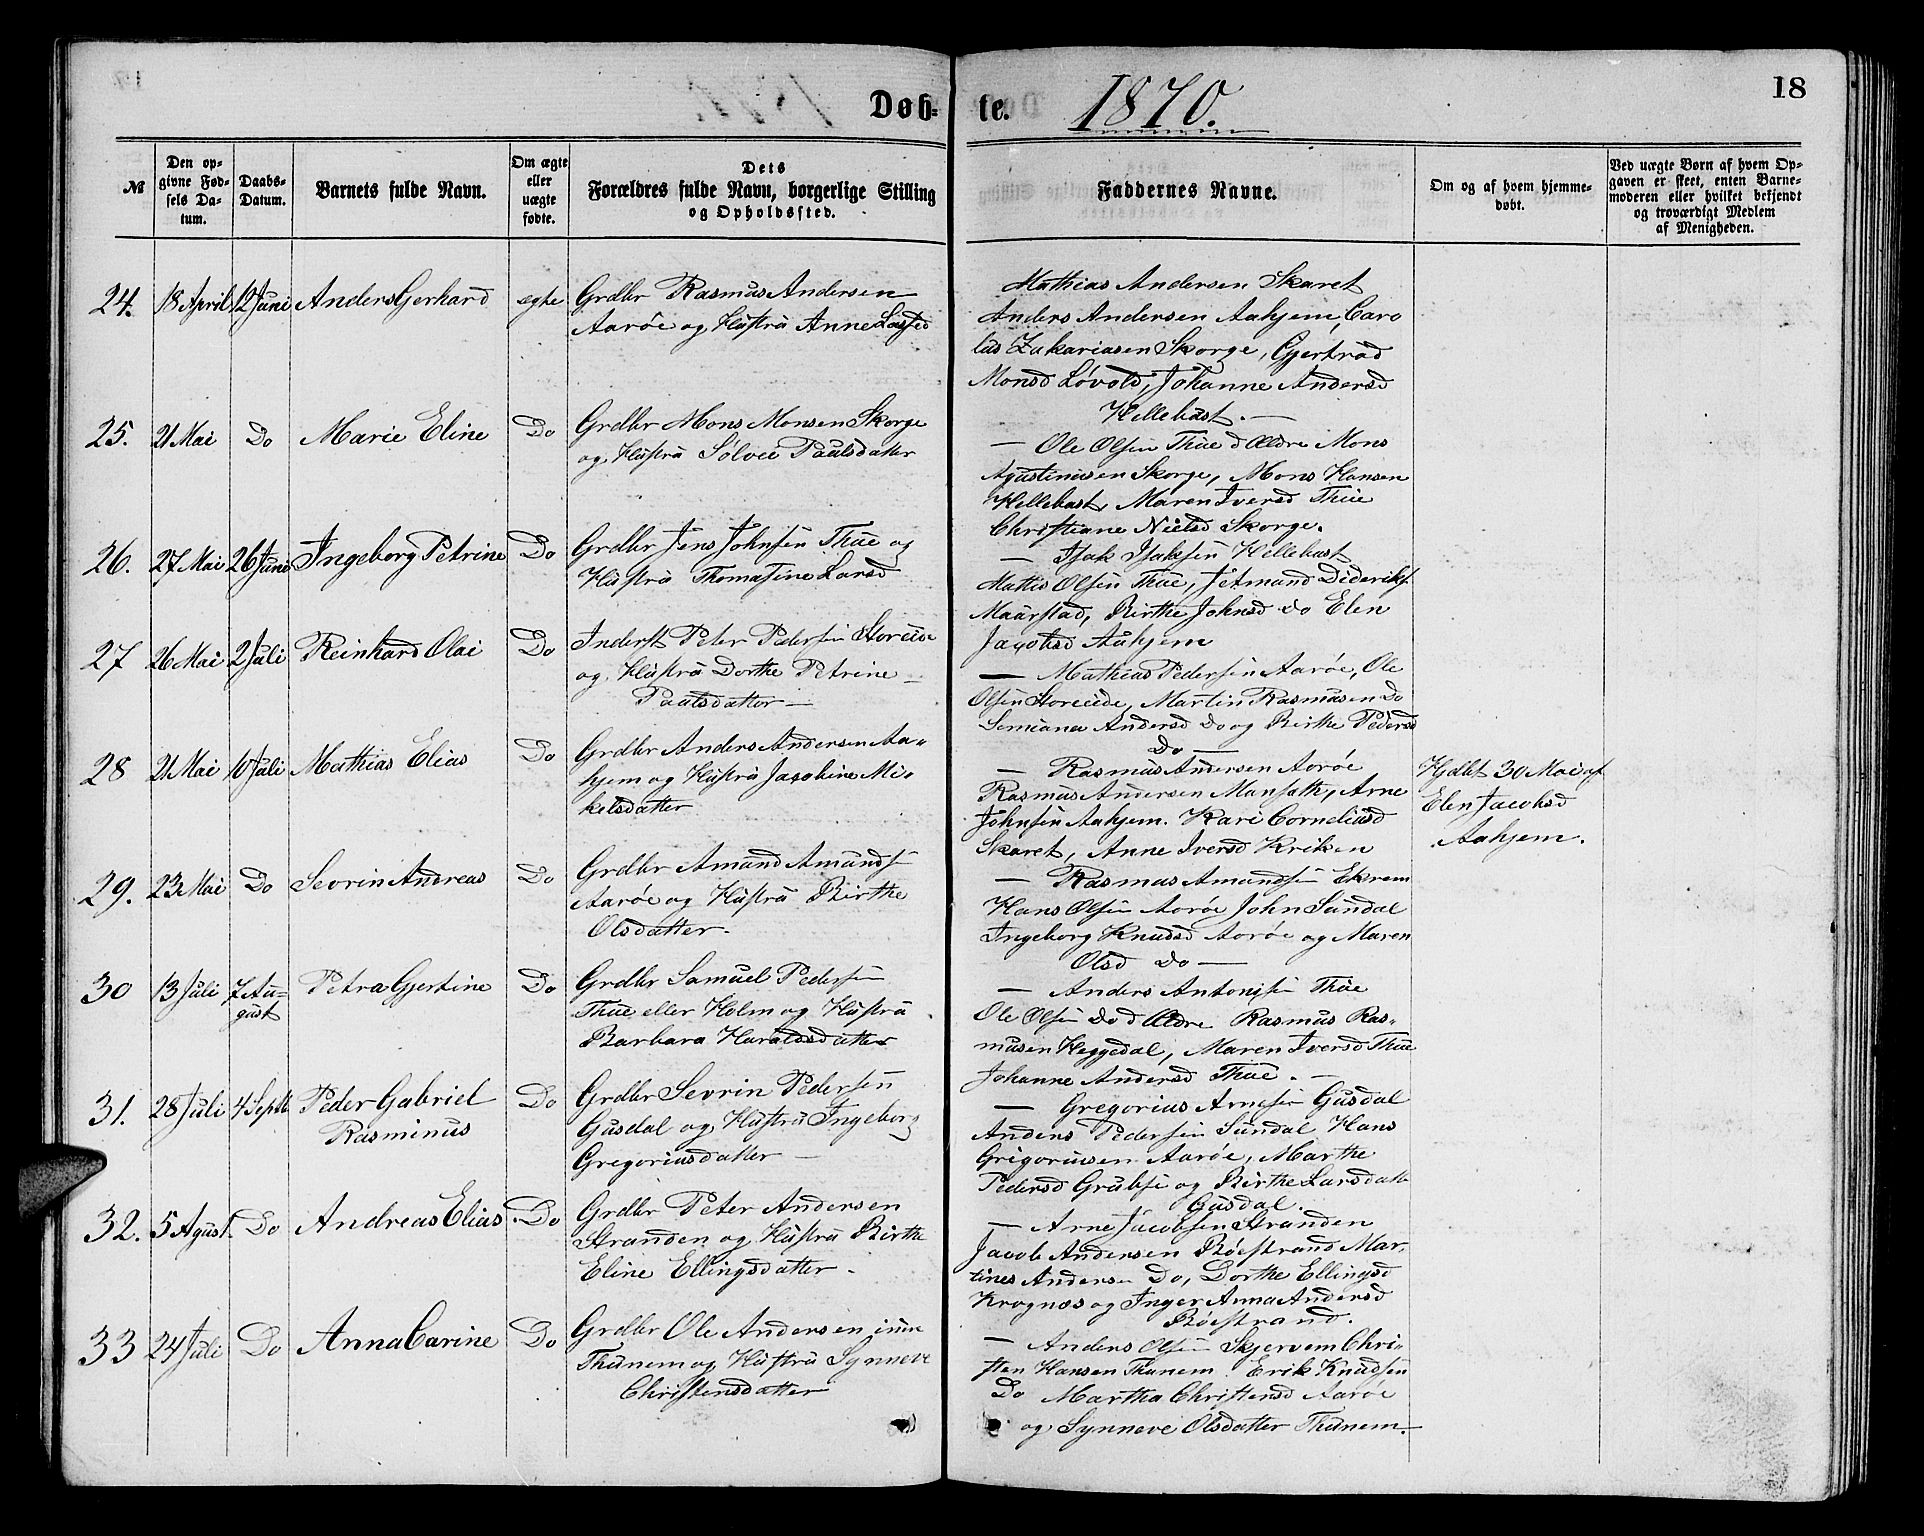 Døb-
te.
1870.
18
№
Den op-
givne Fød-
sels Da-
tum.
Daabs-
Datum.
Barnets fulde Navn.
Om ægte
eller
uægte
fødte.
Dets
Forældres fulde Navn, borgerlige Stilling
og Opholdssted.
Faddernes Navne.
Om og af hvem hjemme-
døbt.
Ved uægte Børn af hvem Op-
gaven er skeet, enten Barne-
moderen eller hvilket bekjendt
og troværdigt Medlem
af Menigheden.
24. 18 April 12 Juni Anders Gerhard ægte
Grdbr Rasmus Andersen
Aarøe og Hustru Anne Lassed
Mathias Andersen Skaret
Anders Andersen Aahjem, Caro
lus Zakariasen Skorge, Gjertrud
Monsd Løvold, Johanne Andersd
Hellebust. —
25. 21 Mai Do Marie Eline Do
Grdbr Mons Monsen Skorge
og Hustru Sølvei Paulsdatter
— Ole Olsen Thue d Ældre Mons
Agustinusen Skorge, Mons Hansen
Hellebust, Maren Iversd Thue
Christiane Nielsd Skorge.
26. 27 Mai 26 Juni Ingeborg Petrine Do
Grdbr Jens Johnsen Thue og
Hustru Thomasine Larsd
— Isak Isaksen Hellebust
Mathis Olsen Thue, Jetmund Dideriks.
Maurstad, Birthe Johnsd Do Elen
Jacobsd Aahjem
27 26 Mai 2 Juli Reinhard Olai Do
Inderst Peter Pedersen Storeide
og Hustru Dorthe Petrine —
Paulsdatter —
— Mathias Pedersen Aarøe, Ole
Olsen Storeide, Martin Rasmusen Do
Semiana Andersd Do og Birthe Pedersd
Do —
28 21 Mai 10 Juli Mathias Elias Do
Grdbr Anders Andersen Aa-
hjem og Hustru Jacobine Mi-
kelsdatter
— Rasmus Andersen Aarøe
Rasmus Andersen Mansath, Arne
Johnsen Aahjem. Kari Corneliusd
Skaret, Anne Iversd Kriken
Hjdbt 30 Mai af
Elen Jacobsd
Aahjem.
29. 23 Mai Do Sevrin Andreas Do
Grdbr Amund Amunds.
Aarøe og Hustru Birthe
Olsdatter.
— Rasmus Amundsen Ekrem
Hans Olsen Aarøe John Sundal
Ingeborg Knudsd Aarøe og Maren
Olsd Do —
30 13 Juli 7 Au-
gust
Petra Gjertine Do
Grdbr Samuel Pedersen
Thue eller Holm og Hustru
Barbara Haraldsdatter
— Anders Antonsen Thue
Ole Olsen Do d Ældre Rasmus Ras-
musen Heggedal, Maren Iversd Thue
Johanne Andersd Thue. —
31. 28 Juli 4 Septb Peder Gabriel
Rasminus
Do
Grdbr Sevrin Pedersen
Gusdal og Hustru Ingeborg
Gregoriusdatter —
— Gregorius Arnesen Gusdal
Anders Pedersen Sundal Hans
Grigoriusen Aarøe, Marthe
Pedersd og Birthe Larsdatt
Gusdal.
32. 5 Agust. Do Andreas Elias Do
Grdbr Peter Andersen
Stranden og Hustru Birthe
Eline Ellingsdatter.
— Arne Jacobsen Stranden
Jacob Andersen Røestrand Mar-
tines Andersen Do, Dorthe Ellingsd
Krognæs og Inger Anna Andersd
Røestrand.
33 24 Juli Do Anna Carine Do
Grdbr Ole Andersen
Thunem og Hustru Synneve
Christensdatter
— Anders Olsen Skjervem Chri-
sten Hansen Thunem. Erik Knudsen
Do Martha Christensd Aarøe
og Synneve Olsdatter Thunem.